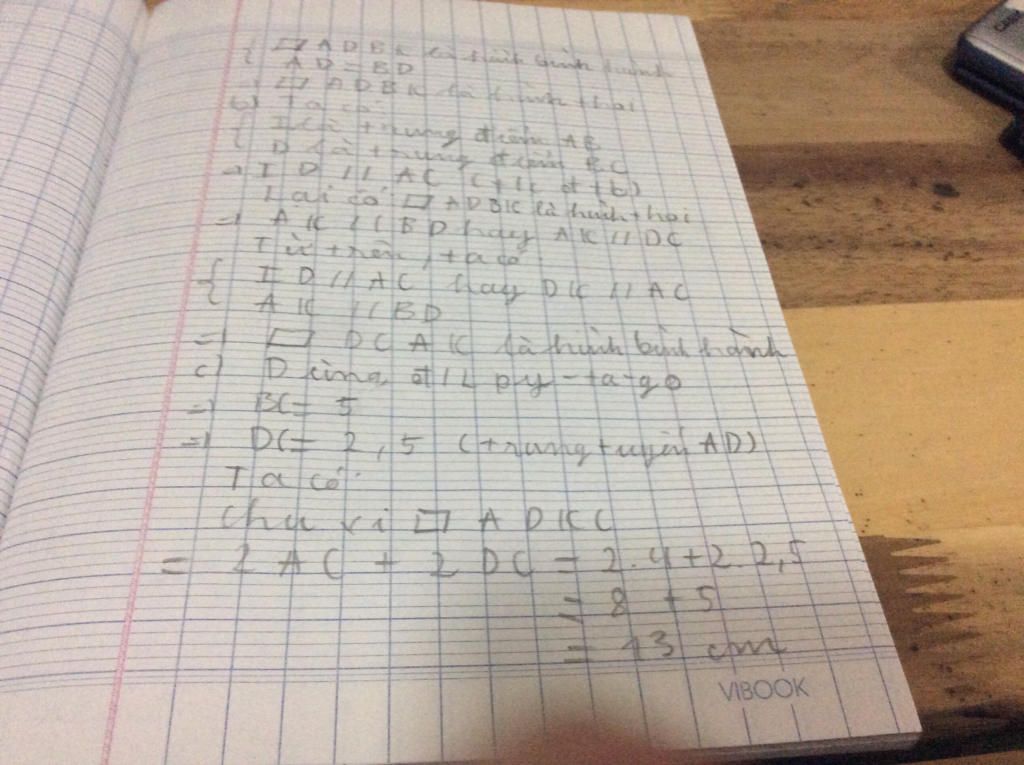 { ▱ A D B K là hình bình hành
A D = B D
⇒ ▱ A D B K là hình thoi
b) Ta có:
{ I là trung điểm AB
D là trung điểm BC
⇒ I D // AC (t/c đ t b)
Lại có ▱ A D B K là hình thoi
⇒ A K // B D hay A K // D C
Từ trên, ta có
{ I D // A C hay D K // A C
A K // B D
⇒ ▱ D C A K là hình bình hành
c) Dùng đ/l py-ta-go
⇒ BC = 5
⇒ DC = 2,5 (trung tuyến AD)
Ta có:
Chu vi ▱ A D K C
= 2 A C + 2 D C = 2.4 + 2.2,5
= 8 + 5
= 13 cm
VIBOOK